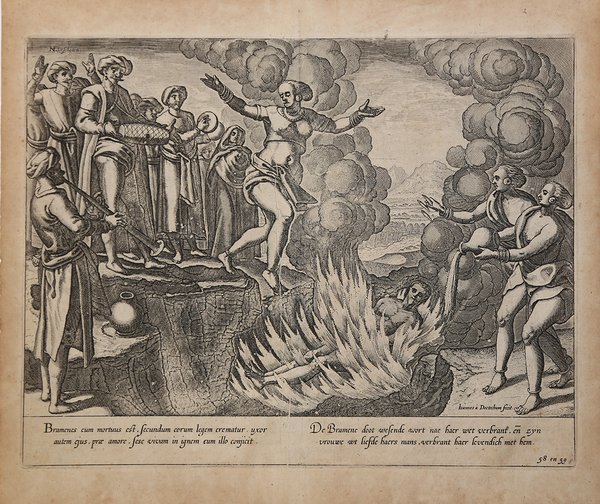 Bramenes cum mortuus est, secundum eorum legem crematur uxor
autem ejus, præ amore, sese vivam in ignem cum illo conjicit.
De Bramene doot wesende wort nae haer wet verbrant, eñ zyn
vrouwe wt liefde haers mans, verbrant haer levendich met hem.
Ioannes a Doetechum fecit
58 en 59